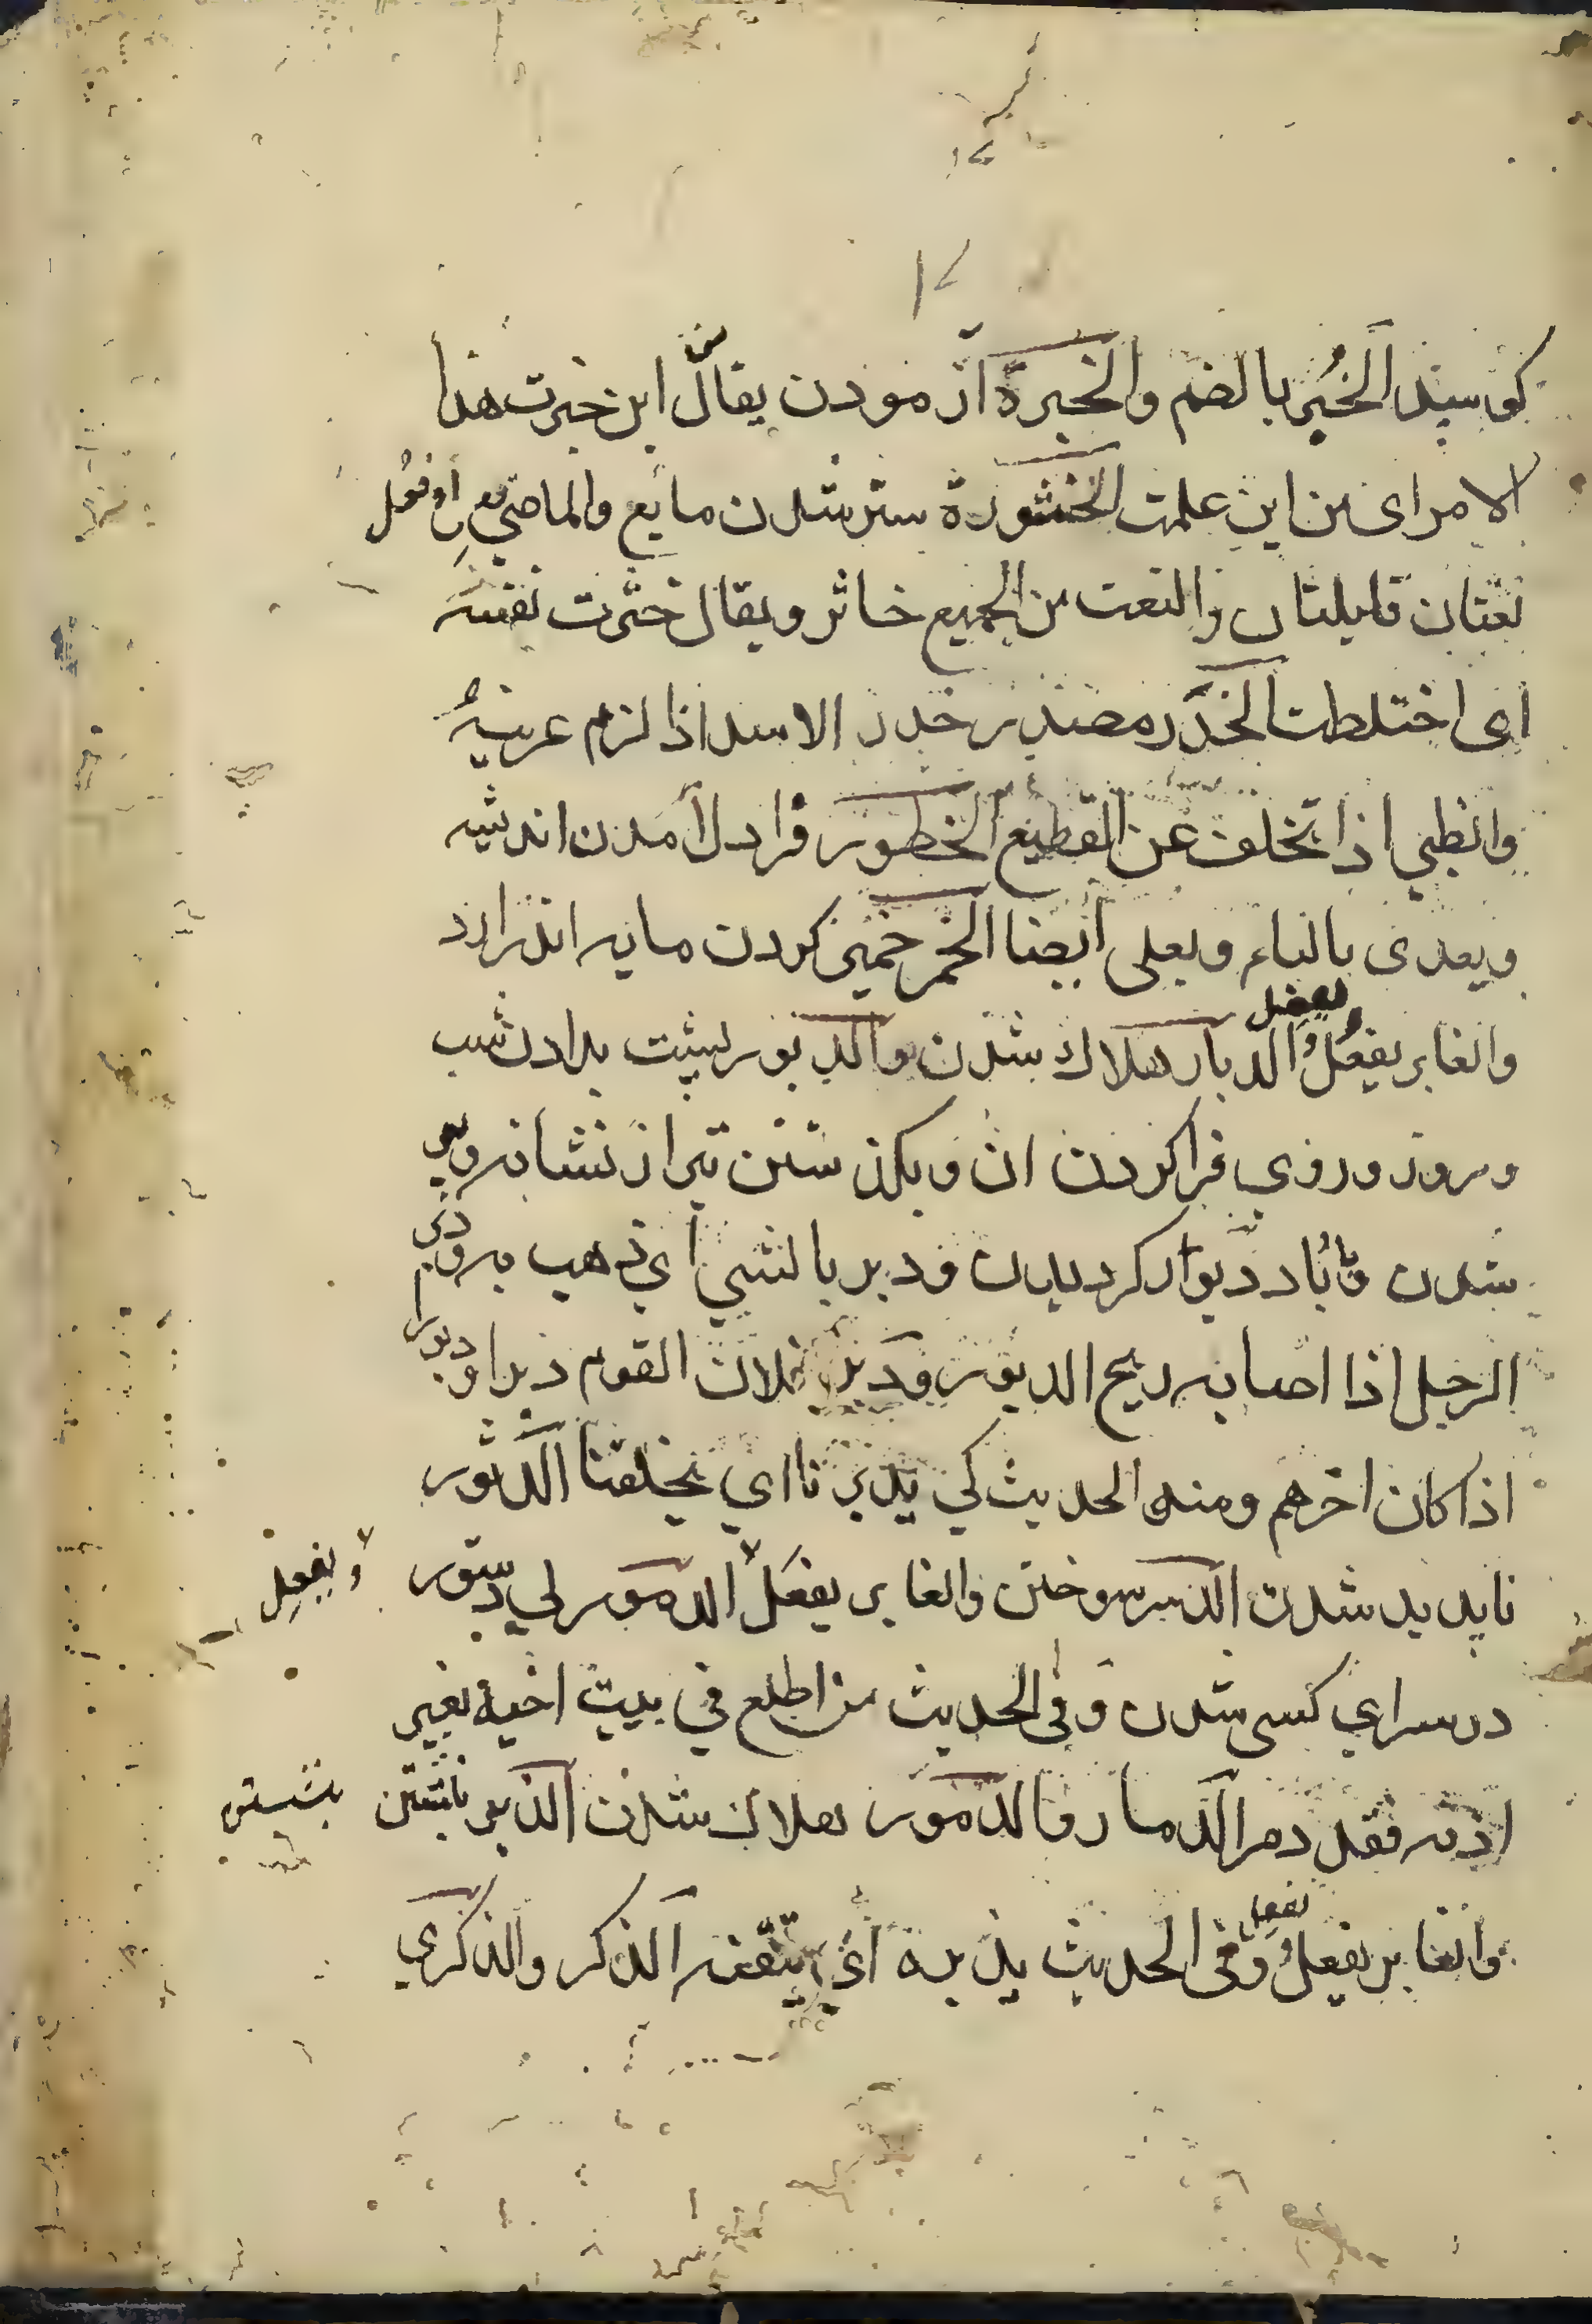 كوسپند الخُبر بالضم والخبرة آزمودن يقال من اين خبرت هذا
الامر اى من اين علمت الخثورة ستر شدن مايع والماضي فعِل أو فعُل
لغتان قليلتان والنعت من الجميع خاثر ويقال خثرت نفسه
اى اختلطت الخَدَر مصدر خدر الاسد اذا لزم عرينه
والظبي اذا تخلف عن القطيع الخطور فرا دل آمدن انديشه
ويعدى بالباء وبعلى ايضا الخمر خمير كردن مايه اندر ارد
والغابر يفعُل ويفعِل الدبار هلاك شدن والدبور سپت بدادن شب
وروز وروزي فرا كردن ان وبكذشتن تير از نشانه وپير
شدن وباد دبوار كرديدن ودبر بالشي اي ذهب به ودبر
الرجل اذا اصابه ريح الدبور ودبر فلان القوم دبرا ودبورا
اذا كان اخرهم ومنه الحديث كي يدبرنا اي يخلفنا الدثور
ناپديد شدن الدسر سوختن والغابر يفعل الدمور لي دستور
ويفعِل
در سراي كسى شدن وفى الحديث من اطلع في بيت اخيه بغير
اذنه فقد دمر الدمار والدمور هلاك شدن الذبر نبشتن
بنشستن
والغابر يفعُل يفعِل وفى الحديث يذبره اي يتقنه الذكر والذكرى